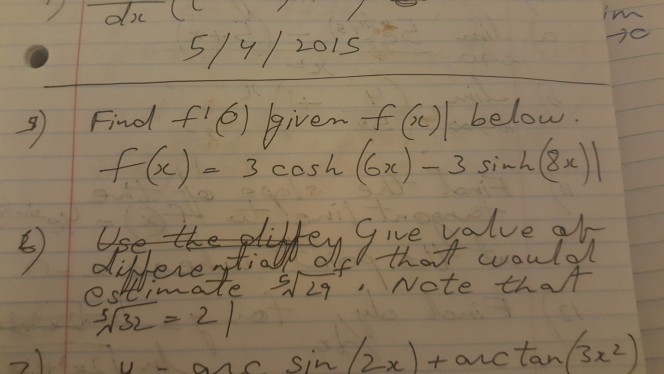 7)
dx (
im
→0
5/4/2015
5) Find f'(0) |given f(x)| below.
f(x) = 3 cosh (6x) - 3 sinh (8x)|
6) Use the differ Give value of
differential df that would
estimate ⁵√29. Note that
⁵√32 = 2|
7) y - arc sin (2x) + arc tan (3x²)